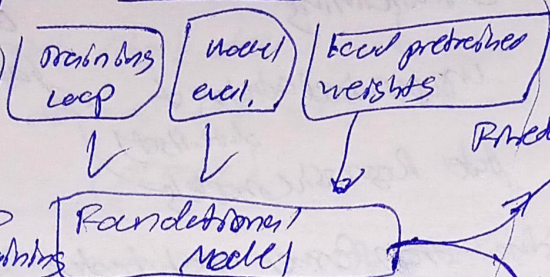 training
loop
model
eval.
Load pretrained
weights
Foundational
Model